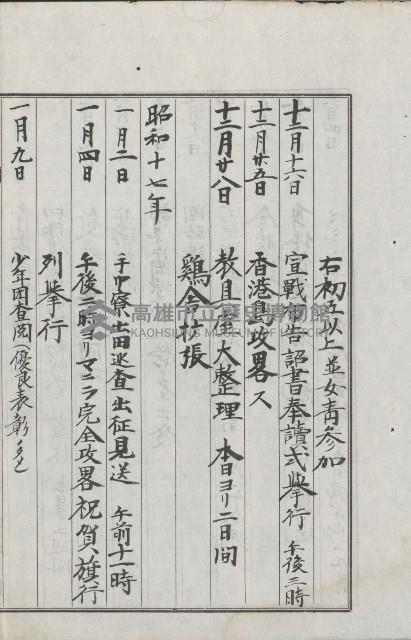 右初五以上並女青参加
十二月十六日 宣戦布告詔書奉讀式挙行 午後三時
十二月廿五日 香港島攻畧ス
十二月廿八日 教具室大整理 本日ヨリ二日間
鶏舎拡張
昭和十七年
一月二日 手巾寮出田巡査出征見送 午前十一時
一月四日 午後二時ヨリマニラ完全攻畧祝賀旗行
列挙行
一月九日 少年団査閲(優良表彰
高雄市立歷史博物館
KAOHSIUNG MUSEUM OF HISTORY